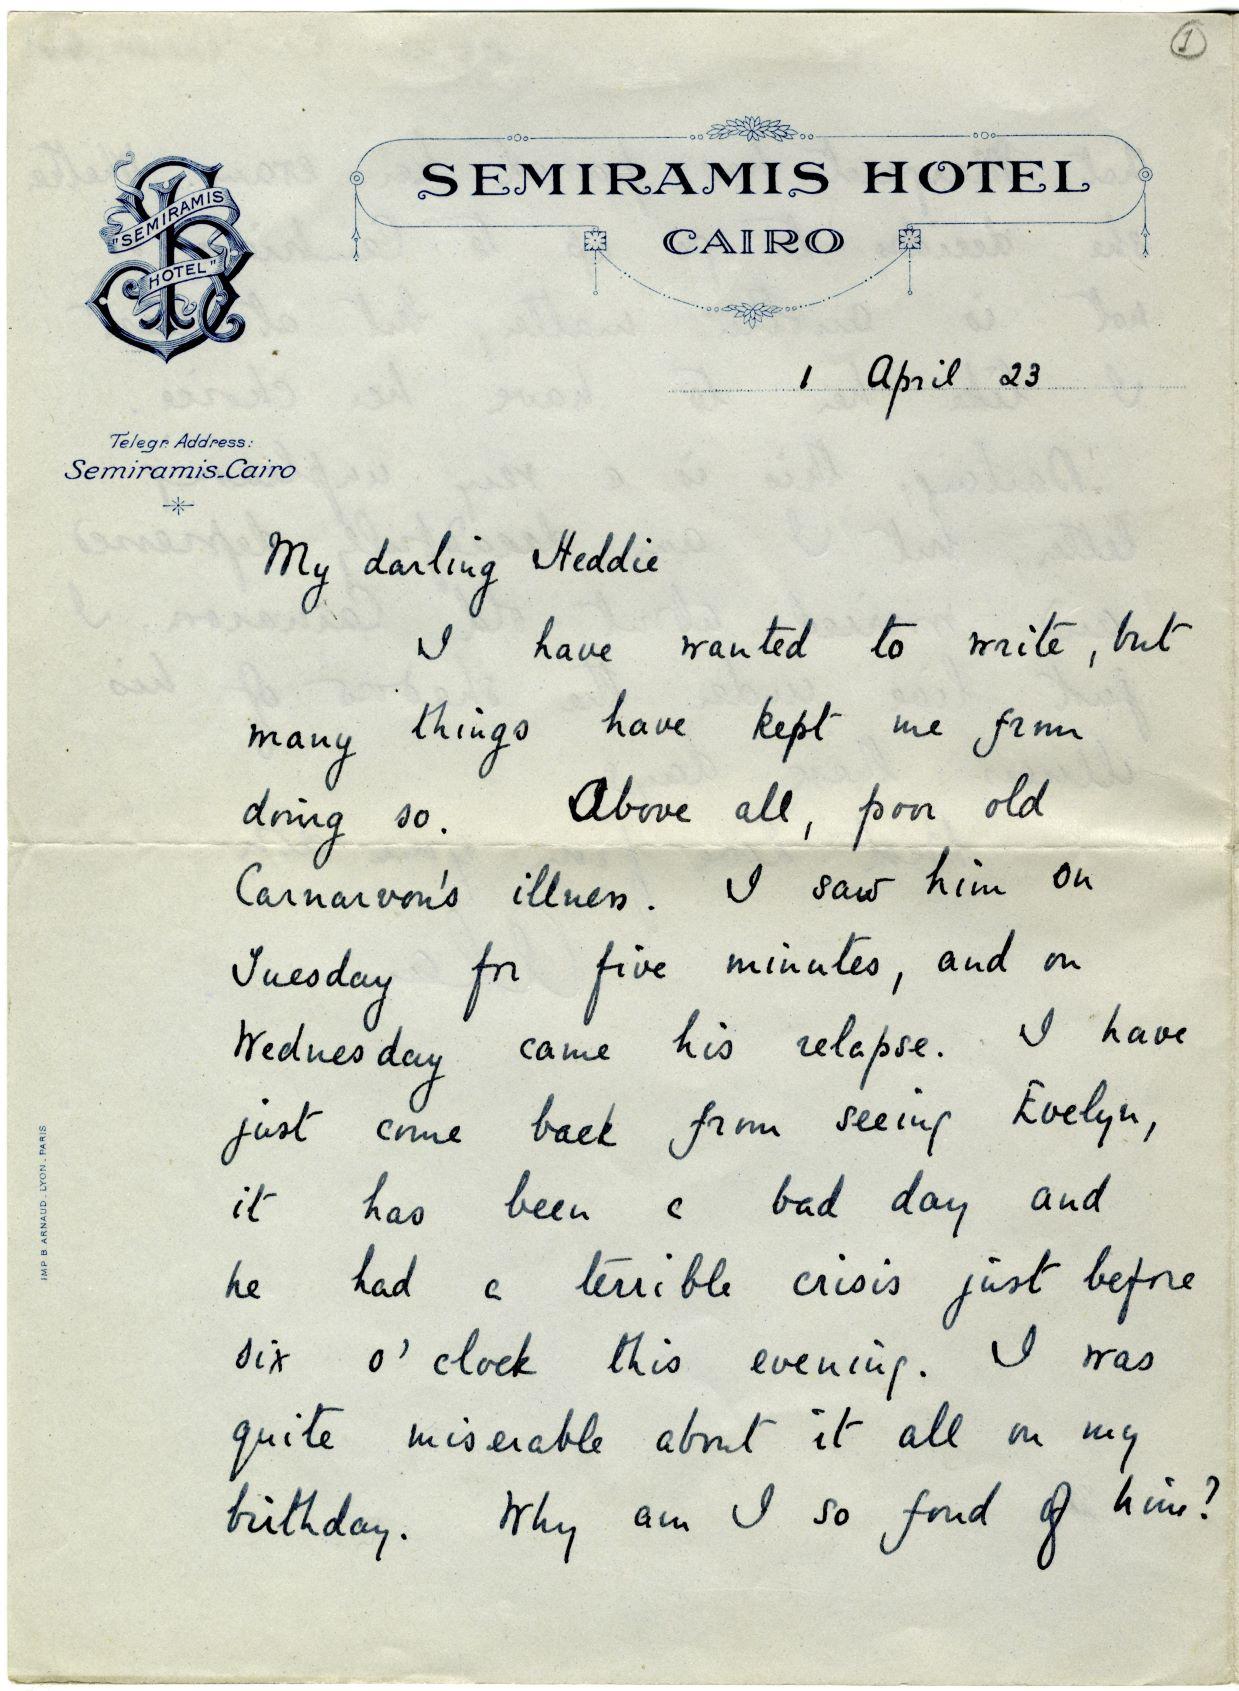 1
SEMIRAMIS HOTEL
CAIRO
"SEMIRAMIS
HOTEL"
1 April 23
Telegr. Address:
Semiramis-Cairo
My darling Heddie
I have wanted to write, but
many things have kept me from
doing so. Above all, poor old
Carnarvon's illness. I saw him on
Tuesday for five minutes, and on
Wednesday came his relapse. I have
just come back from seeing Evelyn,
it has been a bad day and
he had a terrible crisis just before
six o'clock this evening. I was
quite miserable about it all on my
birthday. Why am I so fond of him?
IMP. B. ARNAUD. LYON. PARIS